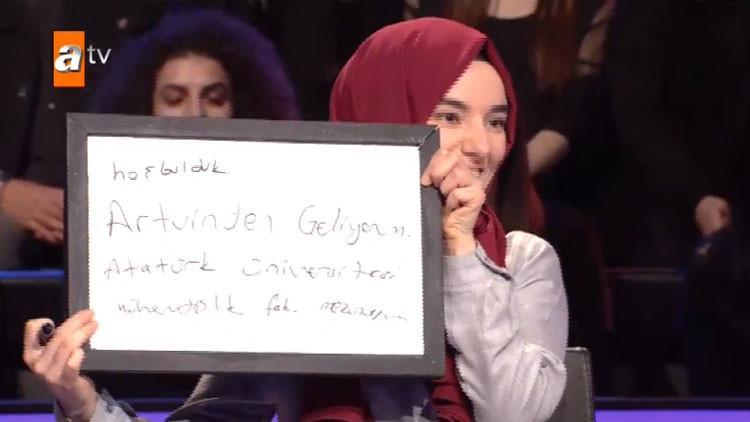 atv
hoşbulduk
Artvinden Geliyorum.
Atatürk üniversitesi
mühendislik fak. mezunuyum